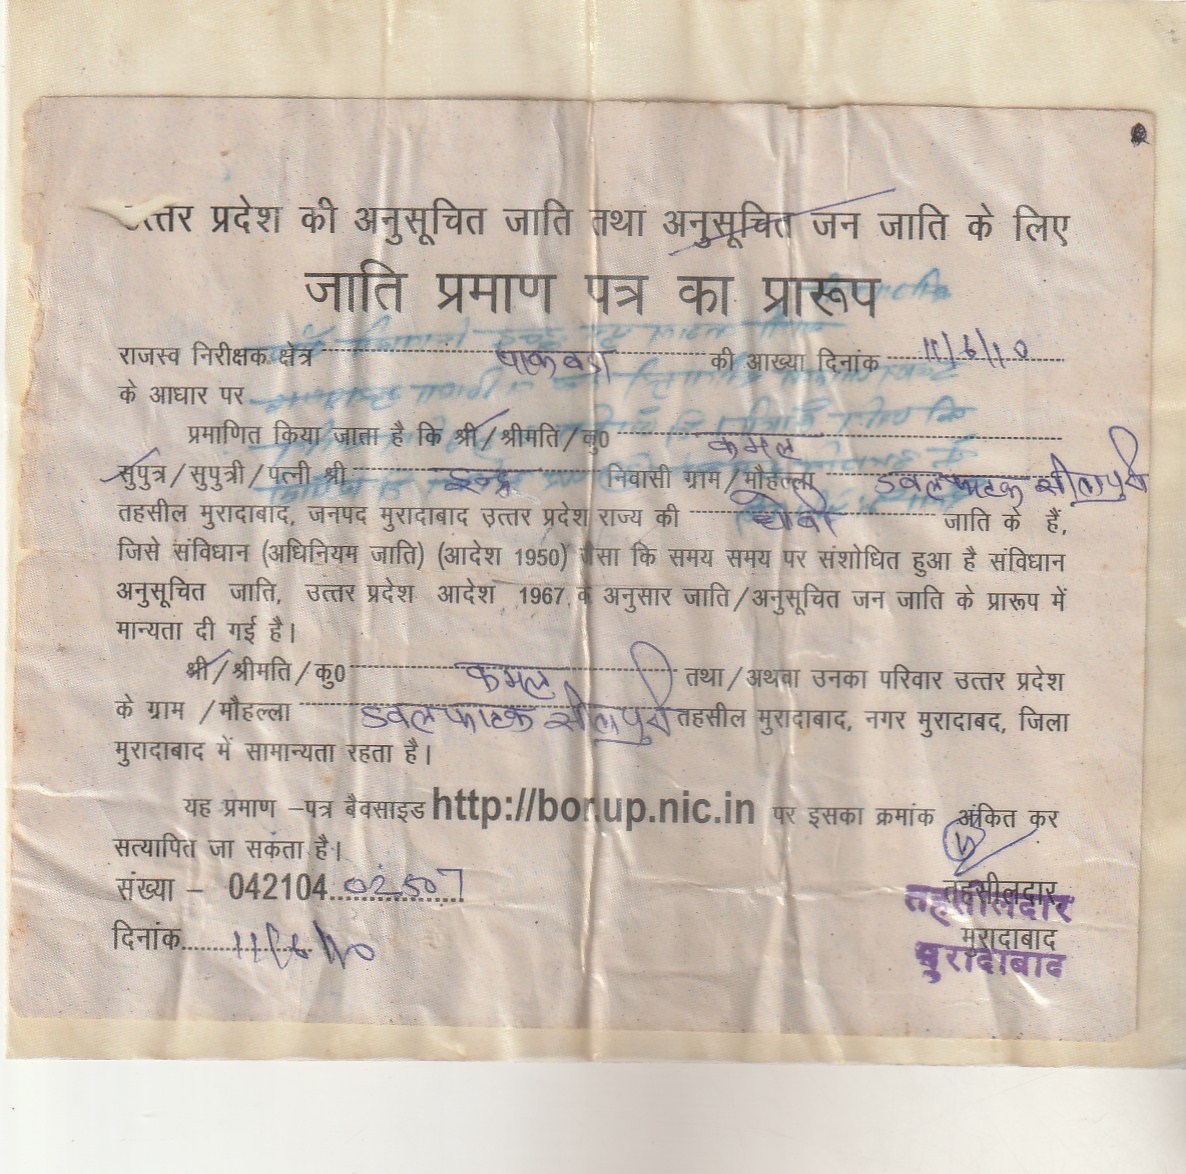 त्तर प्रदेश की अनुसूचित जाति तथा अनुसूचित जन जाति के लिए
जाति प्रमाण पत्र का प्रारूप
राजस्व निरीक्षक क्षेत्र पाकबडा की आख्या दिनांक 11/6/10
के आधार पर
प्रमाणित किया जाता है कि श्री/श्रीमति/कु0 कमल
सुपुत्र/सुपुत्री/पत्नी श्री इन्द्र निवासी ग्राम/मौहल्ला डबल फाटक सीतापुरी
तहसील मुरादाबाद, जनपद मुरादाबाद उत्तर प्रदेश राज्य की धोबी जाति के हैं,
जिसे संविधान (अधिनियम जाति) (आदेश 1950) जैसा कि समय समय पर संशोधित हुआ है संविधान
अनुसूचित जाति, उत्तर प्रदेश आदेश 1967 के अनुसार जाति/अनुसूचित जन जाति के प्रारूप में
मान्यता दी गई है।
श्री/श्रीमति/कु0 कमल तथा/अथवा उनका परिवार उत्तर प्रदेश
के ग्राम /मौहल्ला डबल फाटक सीतापुरी तहसील मुरादाबाद, नगर मुरादाबद, जिला
मुरादाबाद में सामान्यता रहता है।
यह प्रमाण –पत्र बैवसाइड http://bor.up.nic.in पर इसका क्रमांक अंकित कर
सत्यापित जा सकता है।
संख्या – 042104 02507
तहसीलदार
तहसीलदार
दिनांक 11/6/10
मुरादाबाद
मुरादाबाद